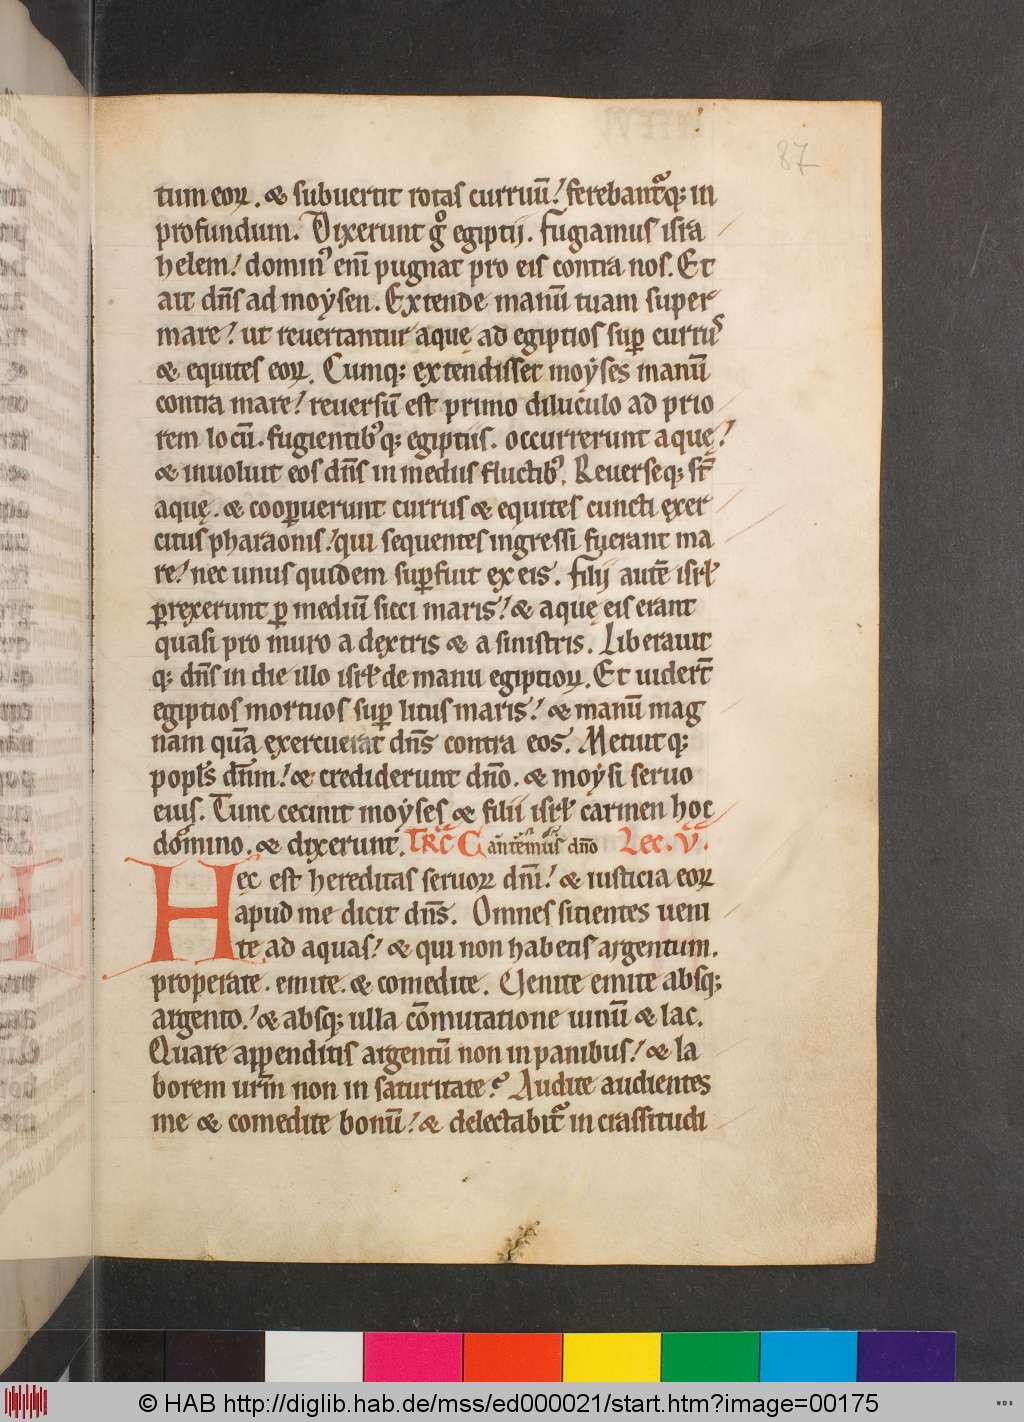 87
tum eoꝝ. & subuertit rotas curruū! ferebant᷑q; in
profundum. Dixerunt gͦ egiptij. Fugiamus isra
helem! domin᾿ enī pugnat pro eis contra nos. Et
ait dn̄s ad moẏsen. Extende manū tuam super
mare! ut reuertantur aquę ad egiptios suꝑ currus
& equites eoꝝ. Cumq; extendisset moẏses manū
contra mare! reuersū est primo diluculo ad prio
rem locū. fugientib᾿q; egiptiis. occurrerunt aquę!
& inuoluit eos dn̄s in medus fluctib᾿. Reuersęq; st̄
aquę. & cooꝑuerunt currus & equites cuncti exer
citus pharaonis! qui sequentes ingressi fuerant ma
re! nec unus quidem suꝑfuit ex eis. Filij autē isrł
ꝑrexerunt ꝑ mediū sicci maris! & aquę eis erant
quasi pro muro a dextris & a sinistris. Liberauit
q; dn̄s in die illo isrł de manu egiptioꝝ. Et uidert̄
egiptios mortuos suꝑ litus maris! & manū mag
nam quā exercuerat dn̄s contra eos. Metiutq;
popl̄s dn̄m! & crediderunt dn̄o. & moẏsi seruo
eius. Tunc cecinit moẏses & filii isrł carmen hoc
domino. & dixerunt. TRC̄ Cantemus dn̄o Lec. V.
Hec est hereditas seruoꝝ dn̄i! & iusticia eoꝝ
apud me dicit dn̄s. Omnes sitientes ueni
te ad aquas! & qui non habetis argentum.
properate. emite. & comedite. Uenite emite absq;
argento! & absq; ulla cōmutatione uinū & lac.
Quare appenditis argentū non in panibus! & la
borem urm̄ non in saturitate? Audite audientes
me & comedite bonū! & delectabit᷑ in crassitudi
© HAB http://diglib.hab.de/mss/ed000021/start.htm?image=00175